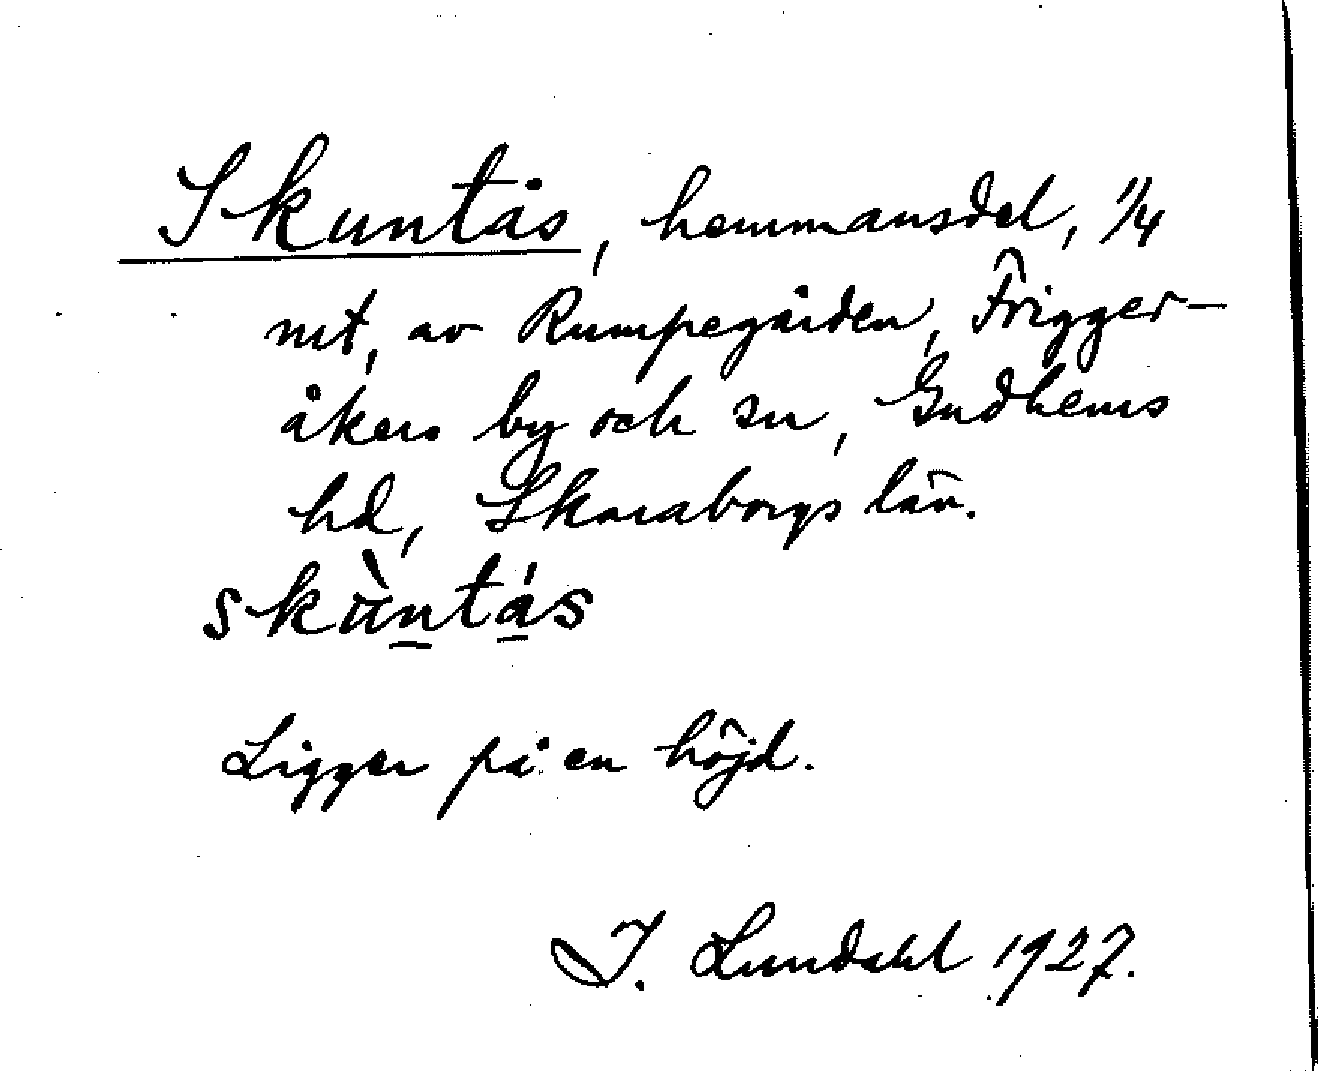 Skuntås, hemmansdel, 1/4
mt, av Rumpegården, Frigger-
åkers by och sn, Gudhems
hd, Skaraborgs län.
skùntás
Ligger på en höjd.
I. Lundahl 1927.